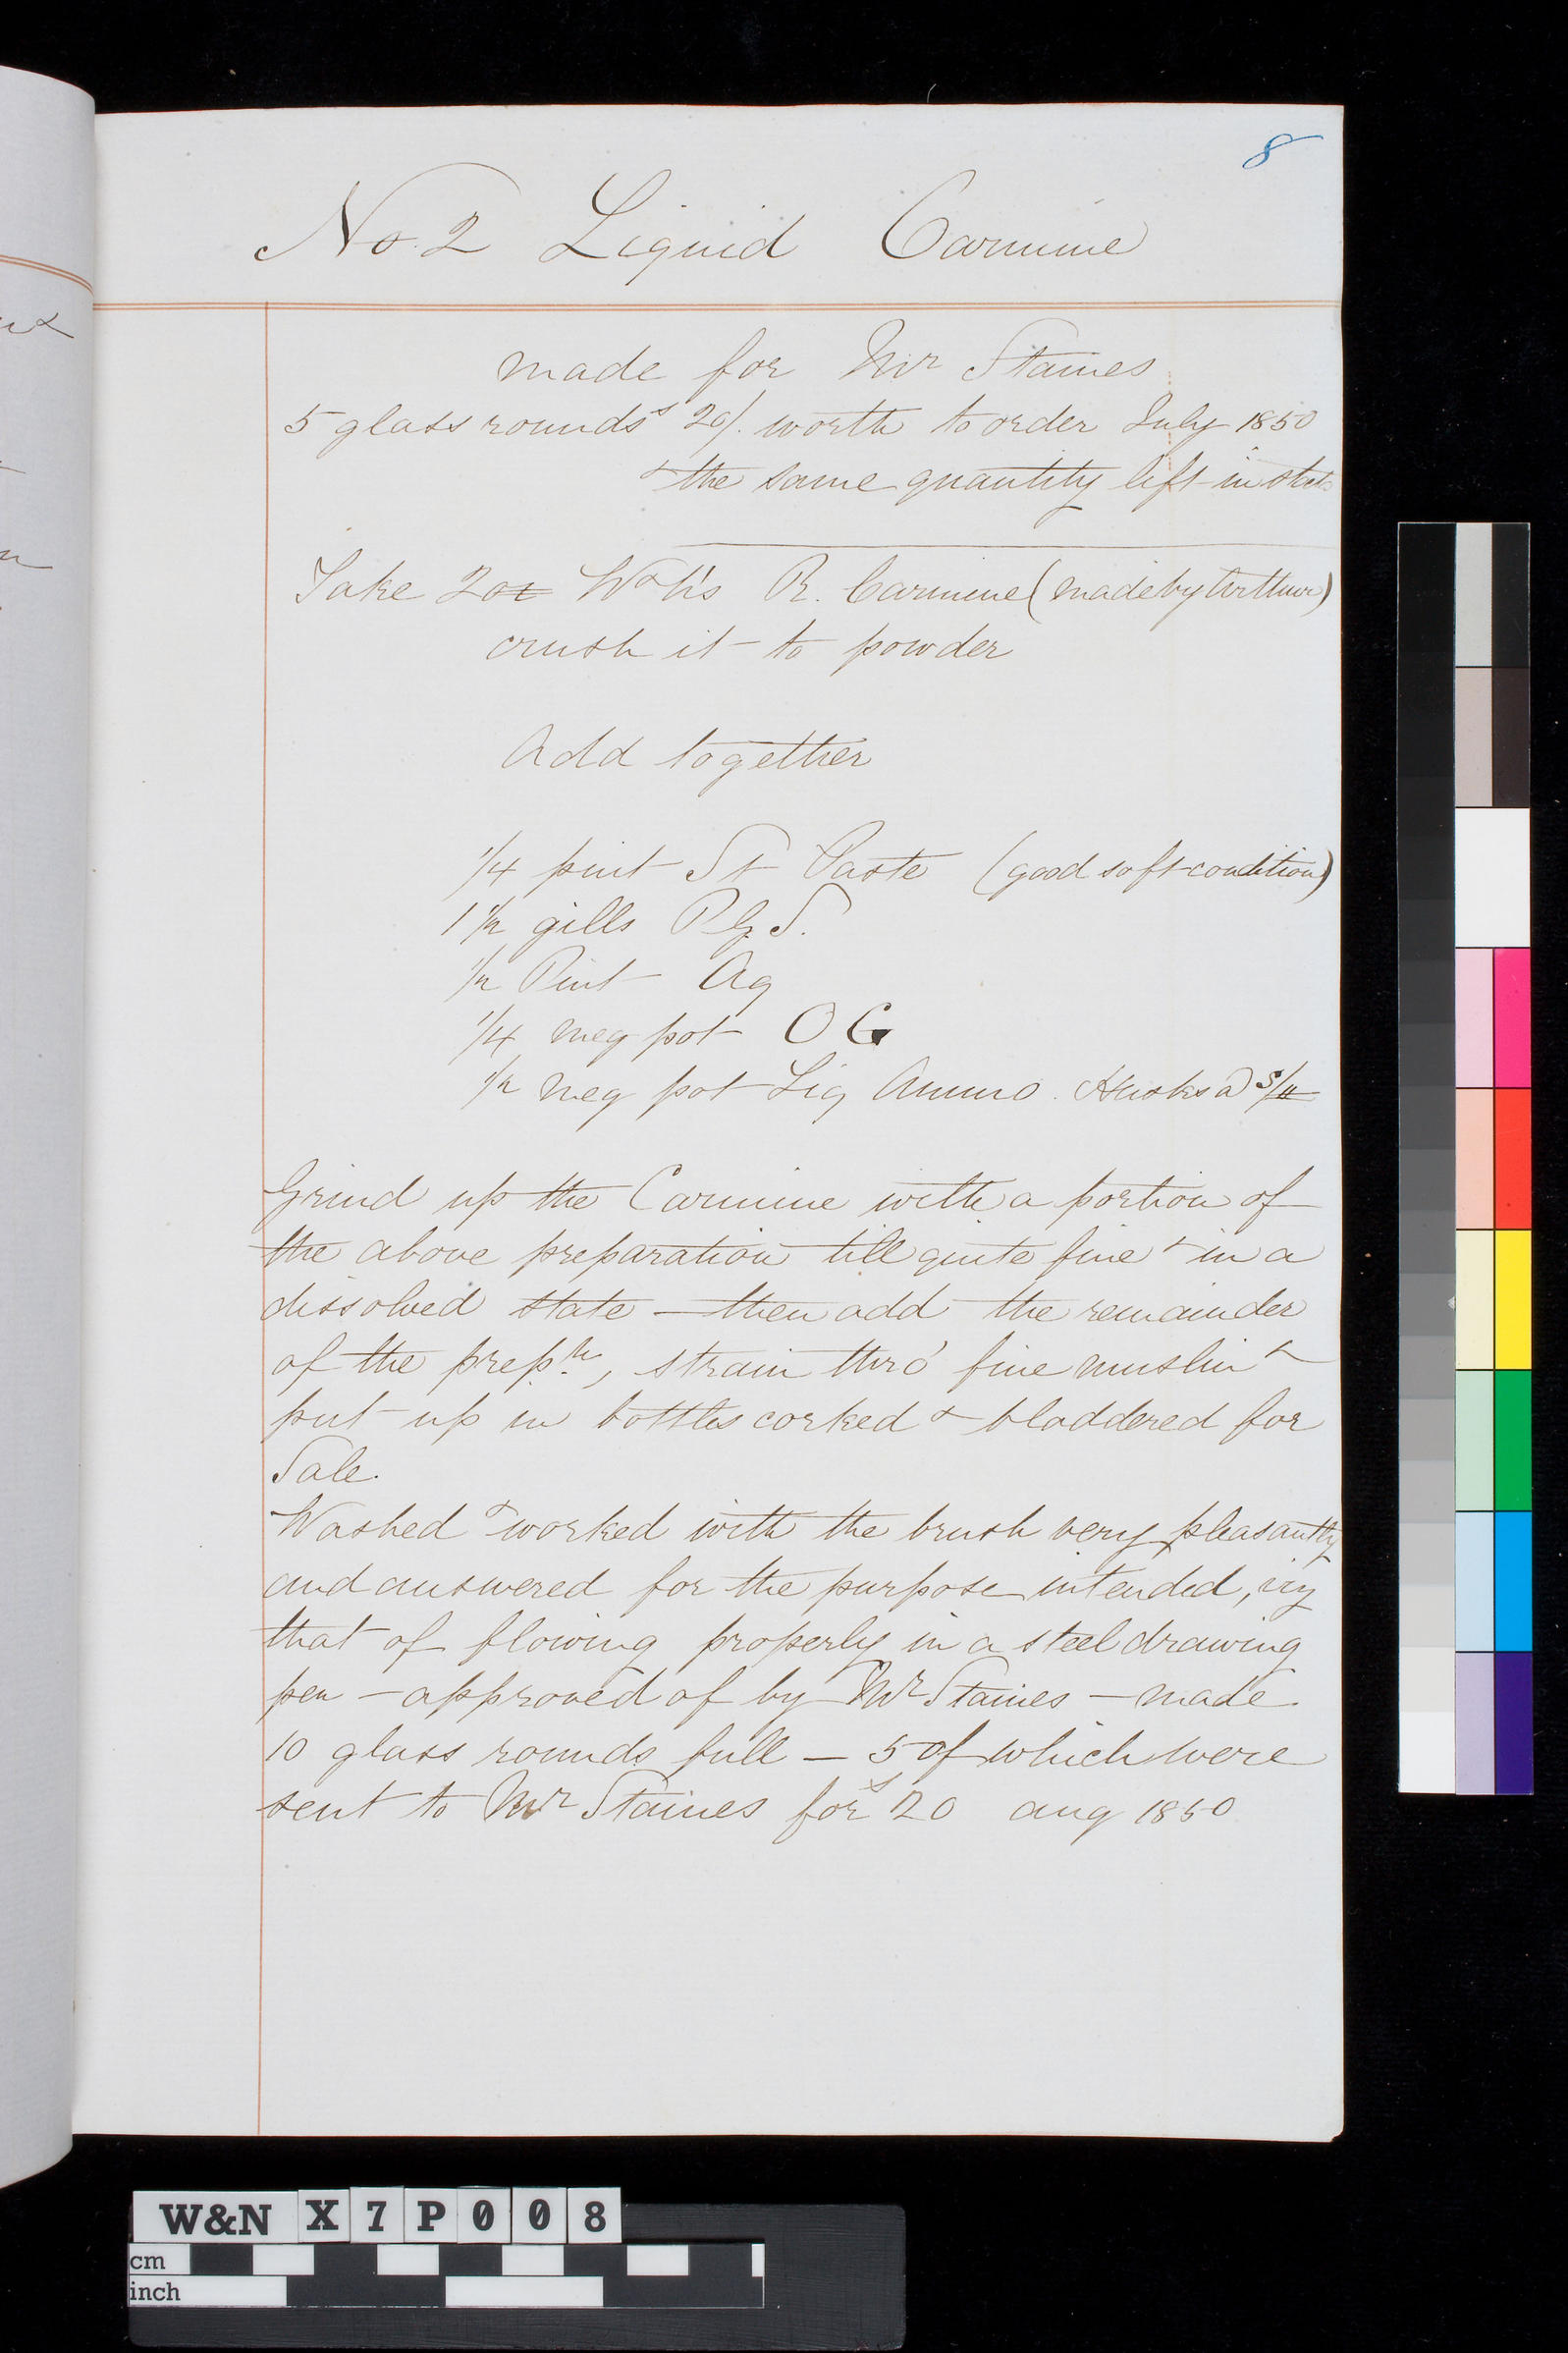 8
No. 2 Liquid Carmine
made for Mr Staines
5 glass rounds 20/. worth to order July 1850
& the same quantity left in
Take 2oz R. Carmine (made by
crush it to powder
Add together
1/4 pint St Paste (good soft condition)
1 1/2 gills P G S.
1/2 Pint Aq
1/4 meg pot O G
1/2 meg pot Liq Ammo.
Grind up the Carmine with a portion of
the above preparation till quite fine & in a
dissolved state — then add the remainder
of the prepn, strain thro' fine muslin &
put up in bottles corked & bladdered for
Sale.
Washed & worked with the brush very pleasantly
and answered for the purpose intended, viz
that of flowing properly in a steel drawing
pen — approved of by Mr Staines — made
10 glass rounds full — 5 of which were
sent to Mr Staines for 20s aug 1850
W&N X7P008
cm
inch